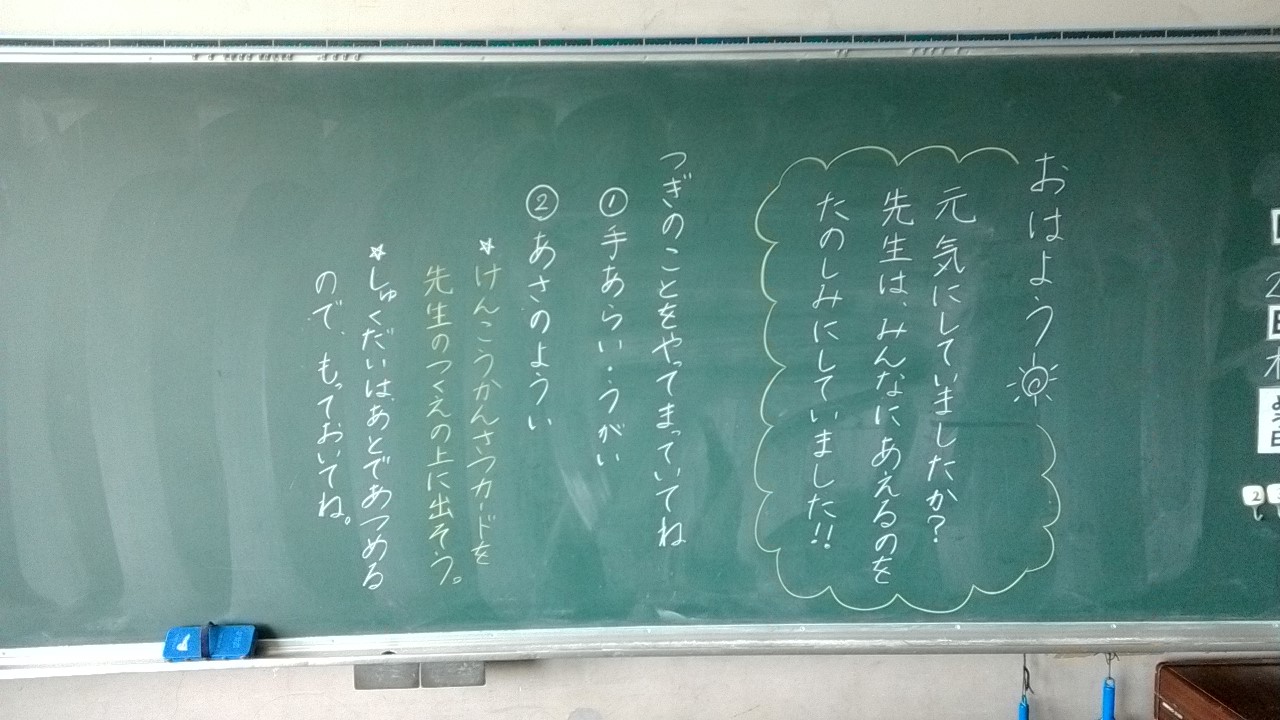 おはよう
元気にしていましたか?
先生は、みんなにあえるのを
たのしみにしていました!!
つぎのことをやってまっていてね
①手あらい・うがい
②あさのようい
☆けんこうかんさつカードを
先生のつくえの上に出そう。
☆しゅくだいは、あとであつめる
ので、もっておいてね。
2